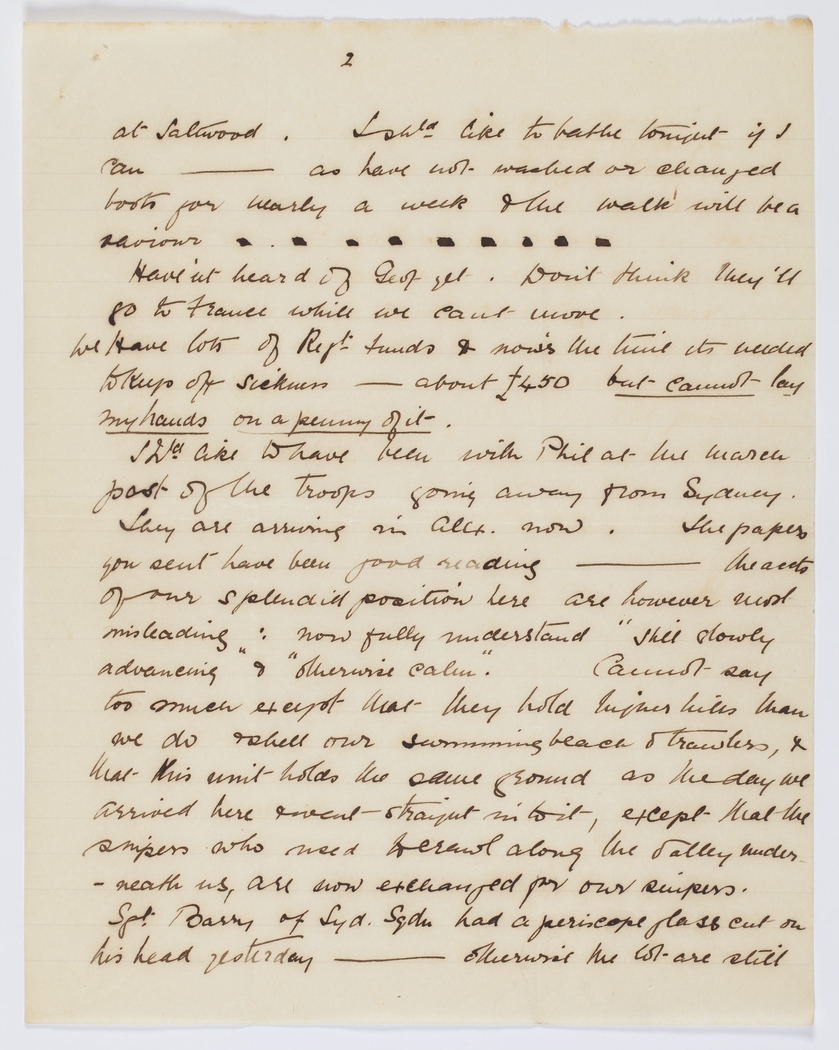 2
at Saltwood. I shld like to bathe tonight if I
can —— as have not washed or changed
boots for nearly a week & the walk will be a
saviour
Have'nt heard of Geof yet. Don't think they'll
go to France while we cant move.
We Have lots of Regtl funds & now's the time its needed
to keep off sickness — about £450 but cannot lay
my hands on a penny of it.
I Wd like to have been with Phil at the march
past of the troops going away from Sydney.
They are arriving in Alex. now. The papers
you sent have been good reading —— the accts
of our splendid position here are however most
misleading: now fully understand "still slowly
advancing" & "otherwise calm". Cannot say
too much except that they hold higher hills than
we do & shell our swimming beach & trawlers, &
that this unit holds the same ground as the day we
arrived here & went straight into it, except that the
snipers who used to crawl along the valley under-
-neath us, are now exchanged for our snipers.
Sgt Barry of Syd. Sqdn had a periscope glass cut on
his head yesterday —— otherwise the lot are still